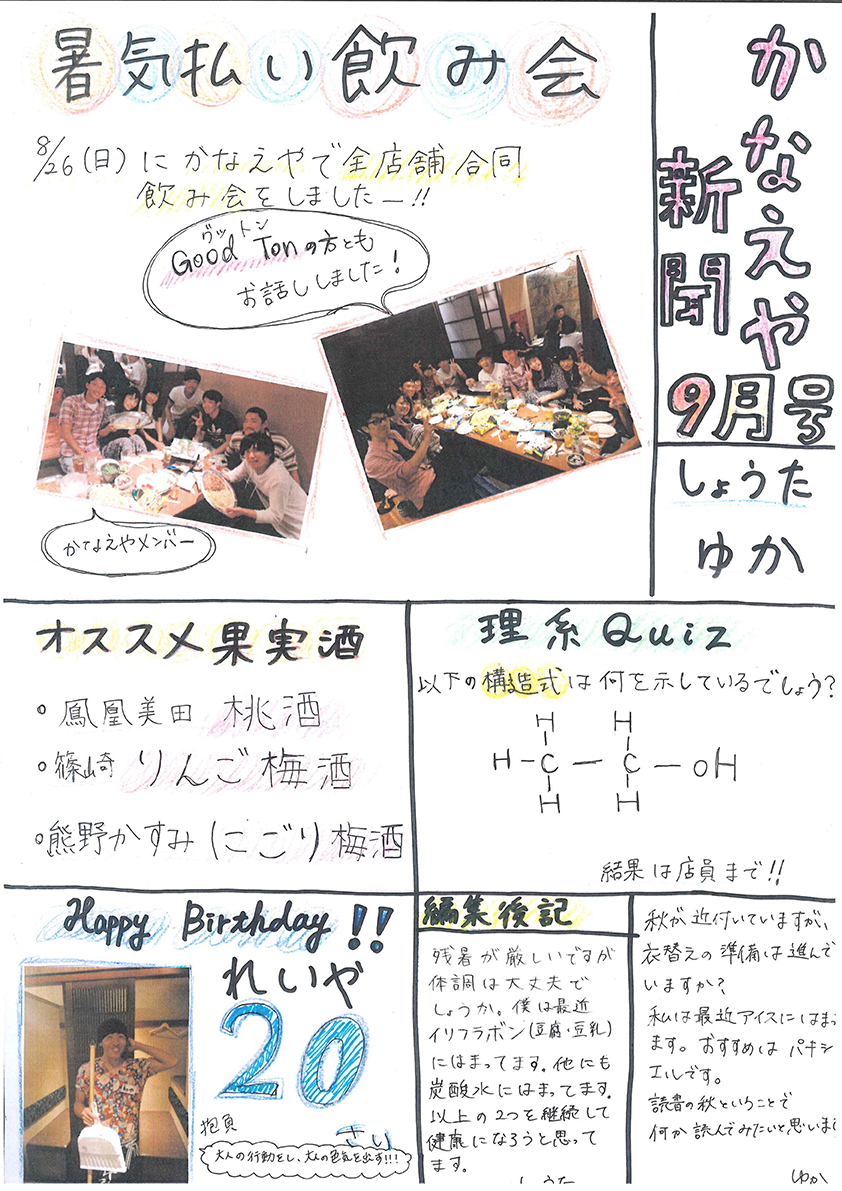 かなえや
新聞
9月号
しょうた
ゆか
暑気払い飲み会
8/26(日)にかなえやで全店舗合同
飲み会をしましたー!!
グットン
Good Tonの方とも
お話ししました!
かなえやメンバー
オススメ果実酒
。鳳凰美田 桃酒
。篠崎 りんご梅酒
。熊野かすみ(にごり)梅酒
理系Quiz
以下の構造式は何を示しているでしょう?
H H
H-C-C-OH
H H
結果は店員まで!!
Happy Birthday!!
れいや
20
さい
抱負
大人の行動をし、大人の色気を出す!!!
編集後記
残暑が厳しいですが
体調は大丈夫で
しょうか。僕は最近
イソフラボン(豆腐・豆乳)
にはまってます。他にも
炭酸水にはまってます。
以上の2つを継続して
健康になろうと思って
ます。
しょうた
秋が近付いていますが、
衣替えの準備は進んで
いますか?
私は最近アイスにはまっ
ます。おすすめはパキシ
エルです。
読書の秋ということで
何か読んでみたいと思いま
ゆか